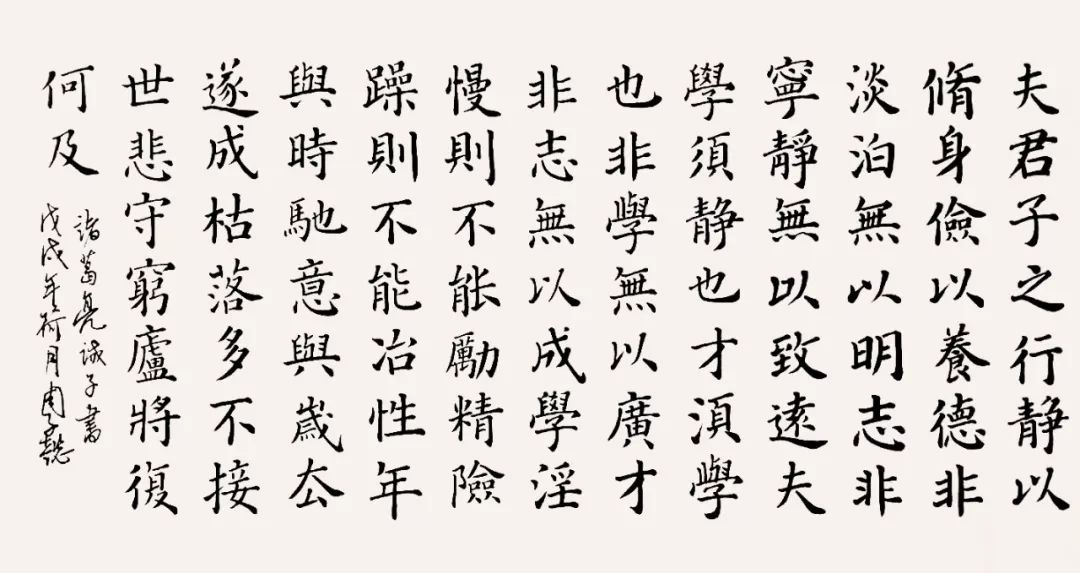 夫君子之行静以
脩身儉以養德非
淡泊無以明志非
寧靜無以致遠夫
學須静也才須學
也非學無以廣才
非志無以成學淫
慢則不能勵精險
躁則不能冶性年
與時馳意與歲厺
遂成枯落多不接
世悲守窮廬將復
何及
諸葛亮誡子書
戊戌年荷月